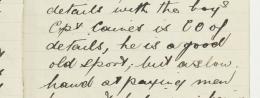 details with the boys
Cpt Caines is CO of
details, he is a good
old sport, but a slow
hand at paying men